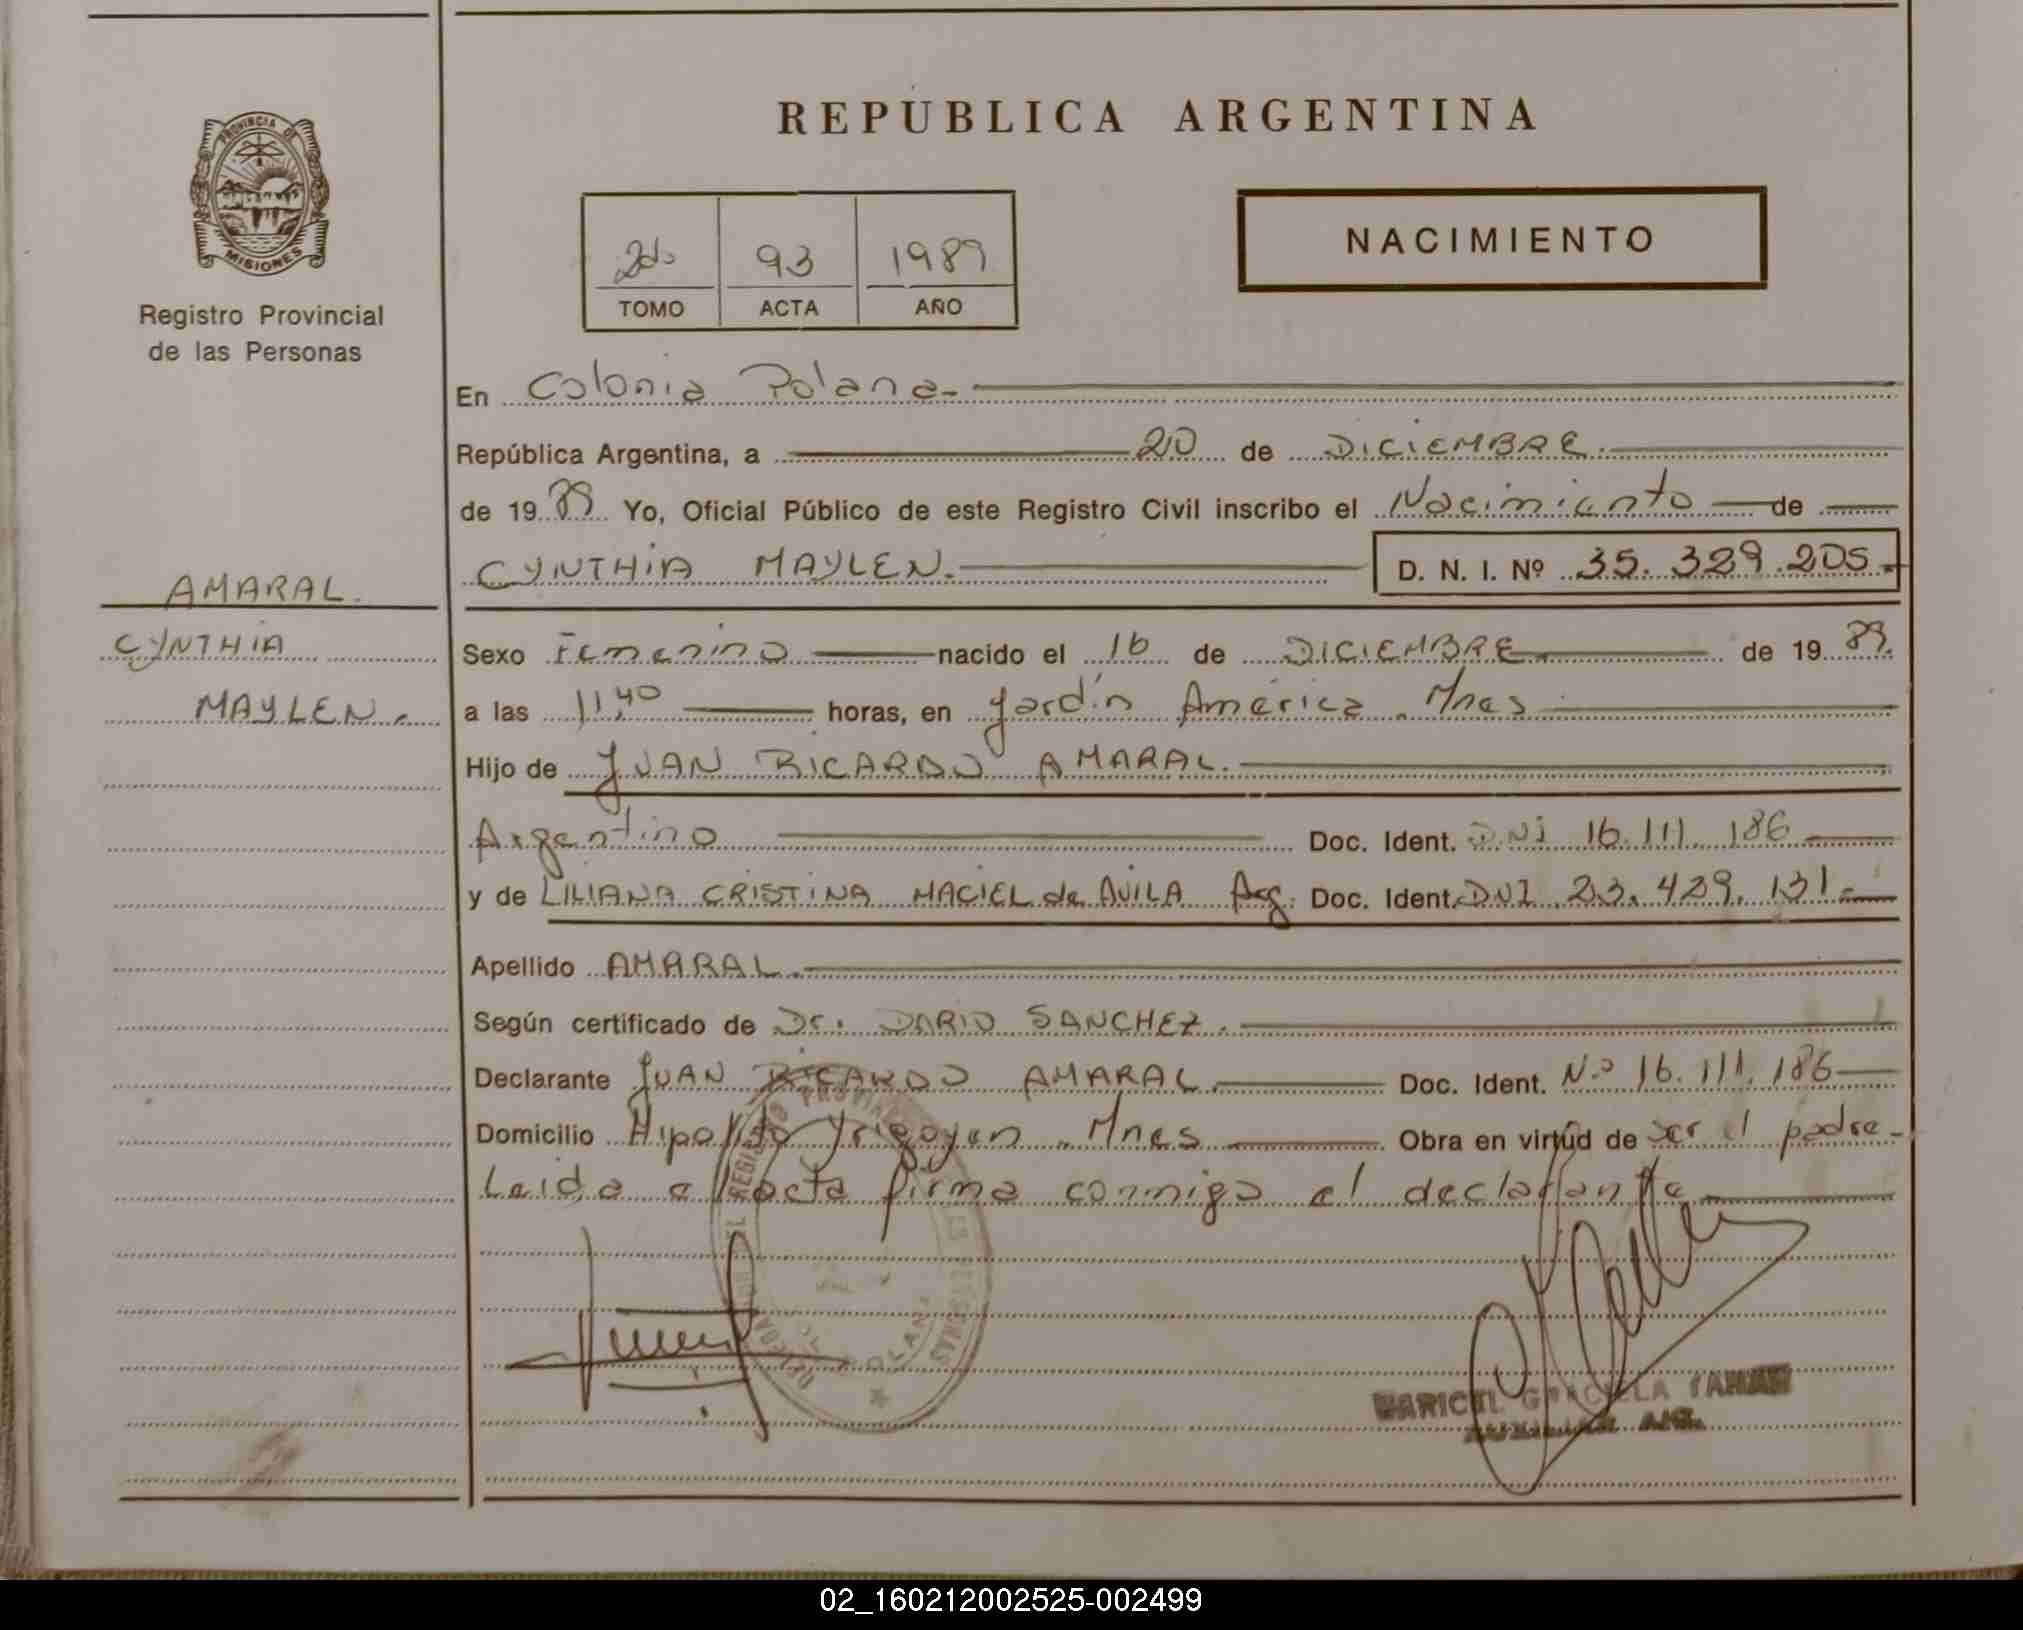 REPUBLICA ARGENTINA
PROVINCIA DE
MISIONES
Registro Provincial
de las Personas
2do 93 1989
TOMO ACTA AÑO
NACIMIENTO
En Colonia Polana.-
República Argentina, a 20 de DICIEMBRE.
de 19 89 Yo, Oficial Público de este Registro Civil inscribo el Nacimiento de
CYNTHIA MAYLEN. D. N. I. Nº 35.329.205.-
AMARAL.
CYNTHIA
MAYLEN.-
Sexo Femenino nacido el 16 de DICIEMBRE. de 19 89.
a las 11,40 horas, en Jardín América. Mnes
Hijo de JUAN RICARDO AMARAL.
Argentino Doc. Ident. DNI 16.111.186
y de LILIANA CRISTINA MACIEL de AVILA Arg. Doc. Ident. DNI 23.429.131.-
Apellido AMARAL.
Según certificado de Dr. DARIO SANCHEZ.
Declarante JUAN RICARDO AMARAL Doc. Ident. Nº 16.111.186
Domicilio Hipolito Yrigoyen. Mnes Obra en virtud de ser el padre-
Leida el acta firma conmigo el declarante.
REGISTRO PROVINCIAL
PERSONAS
MARICEL GRACIELA
02_160212002525-002499